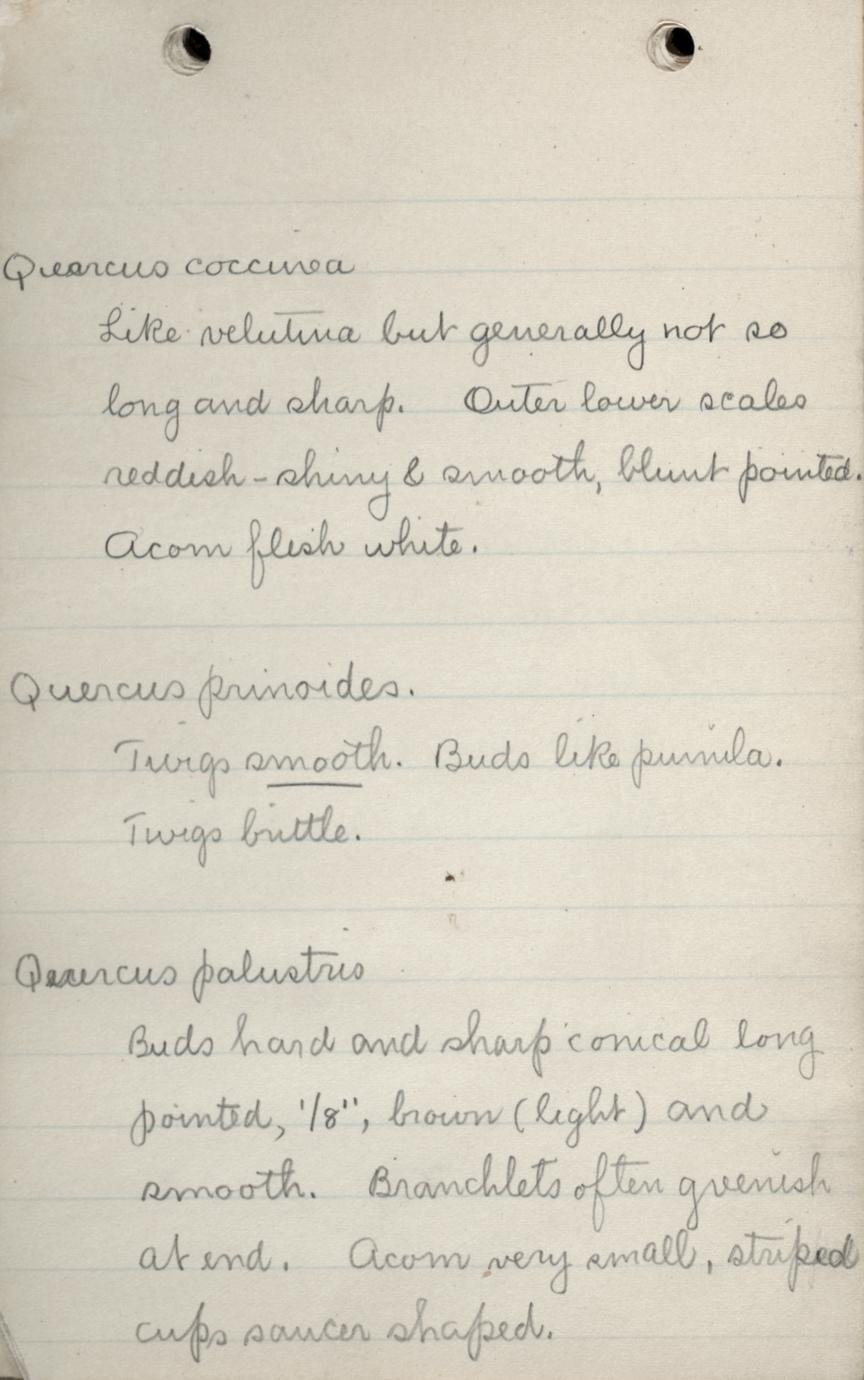 Quercus coccinea
Like velutina but generally not so
long and sharp. Outer lower scales
reddish - shiny & smooth, blunt pointed.
Acorn flesh white.
Quercus prinoides.
Twigs smooth. Buds like pumila.
Twigs brittle.
Quercus palustris
Buds hard and sharp conical long
pointed, 1/8", brown (light) and
smooth. Branchlets often greenish
at end. Acorn very small, striped
cups saucer shaped.